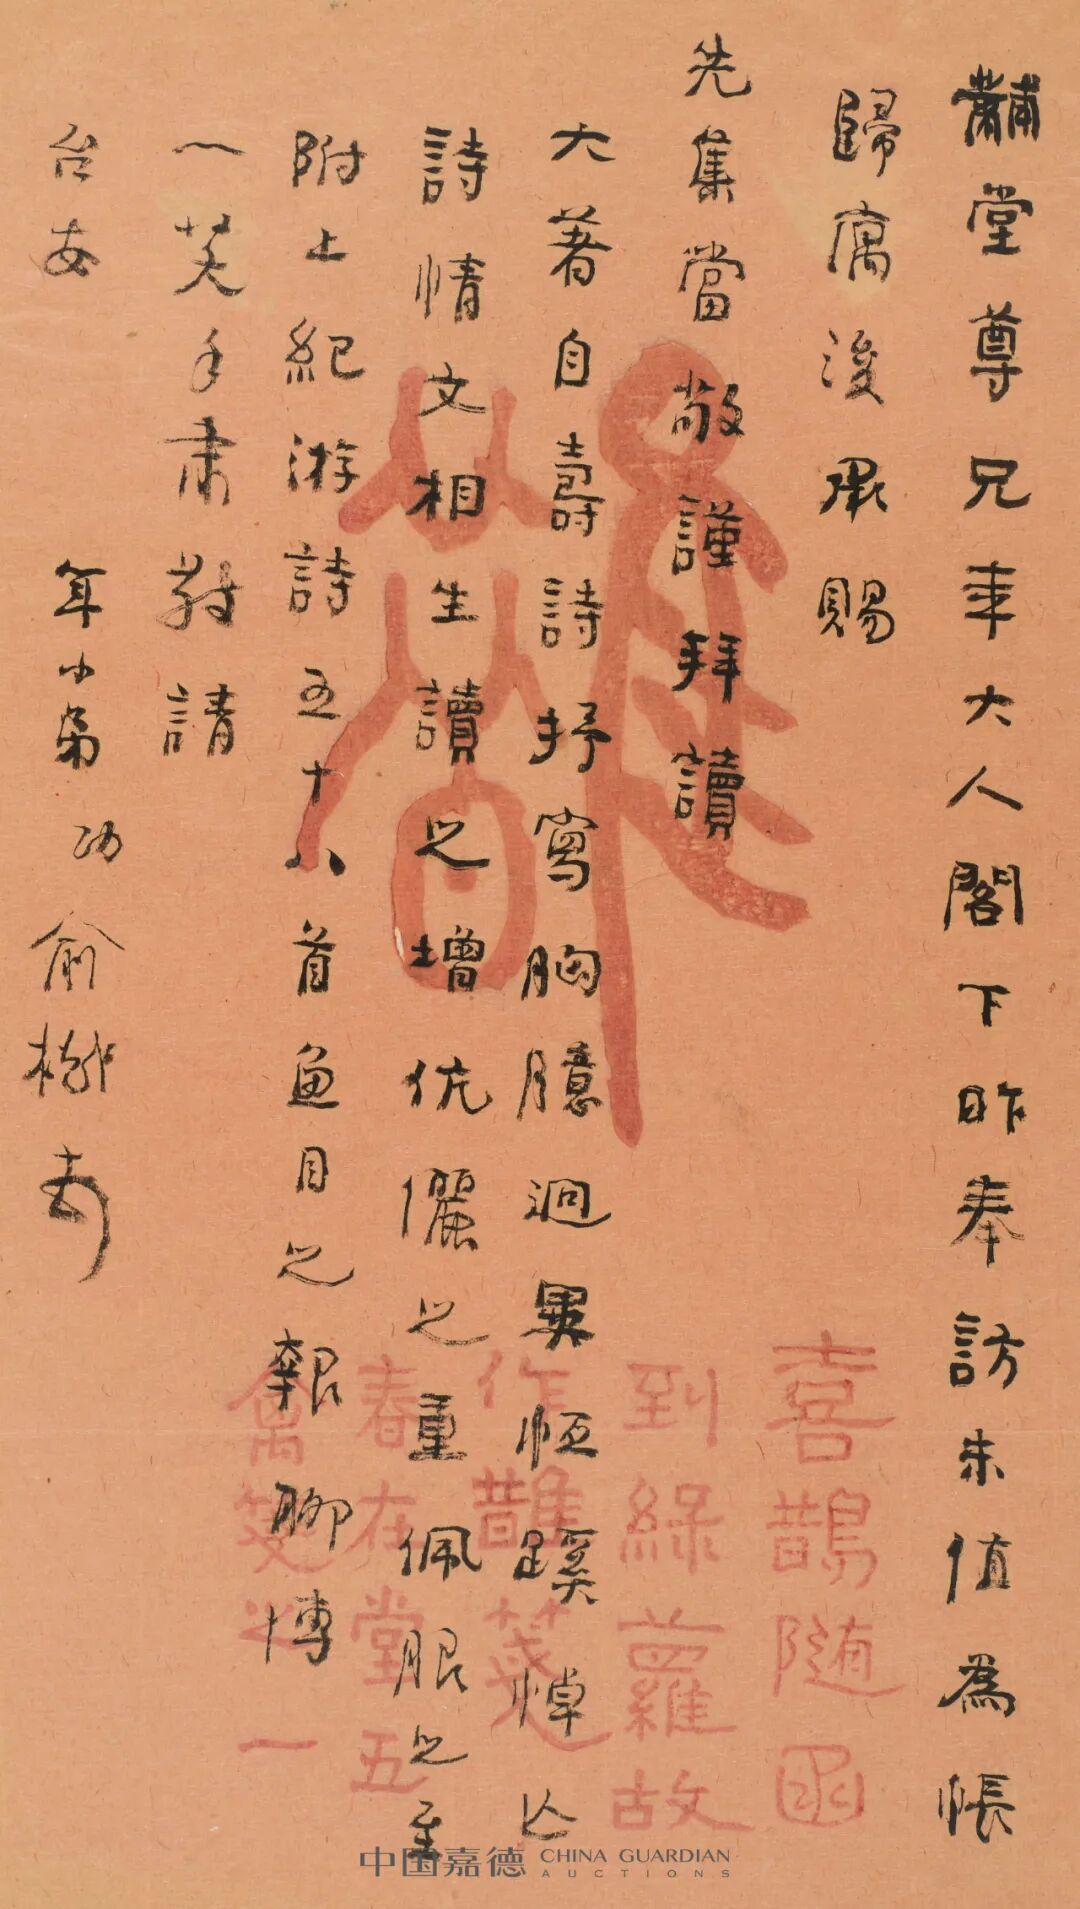 黼堂尊兄年大人閣下昨奉訪未值為悵
歸寓後承賜
先集當敬謹拜讀
大著自壽詩抒寫胸臆迥異恒蹊悼亡
詩情文相生讀之增伉儷之重佩服之至
附上紀游詩五十八首魚目之報聊博
一笑手肅敬請
台安
年小弟功俞樾
喜鵲随函
到綠蘿故
作鵲箋
春在堂五
禽箋之一
中国嘉德 CHINA GUARDIAN
AUCTIONS